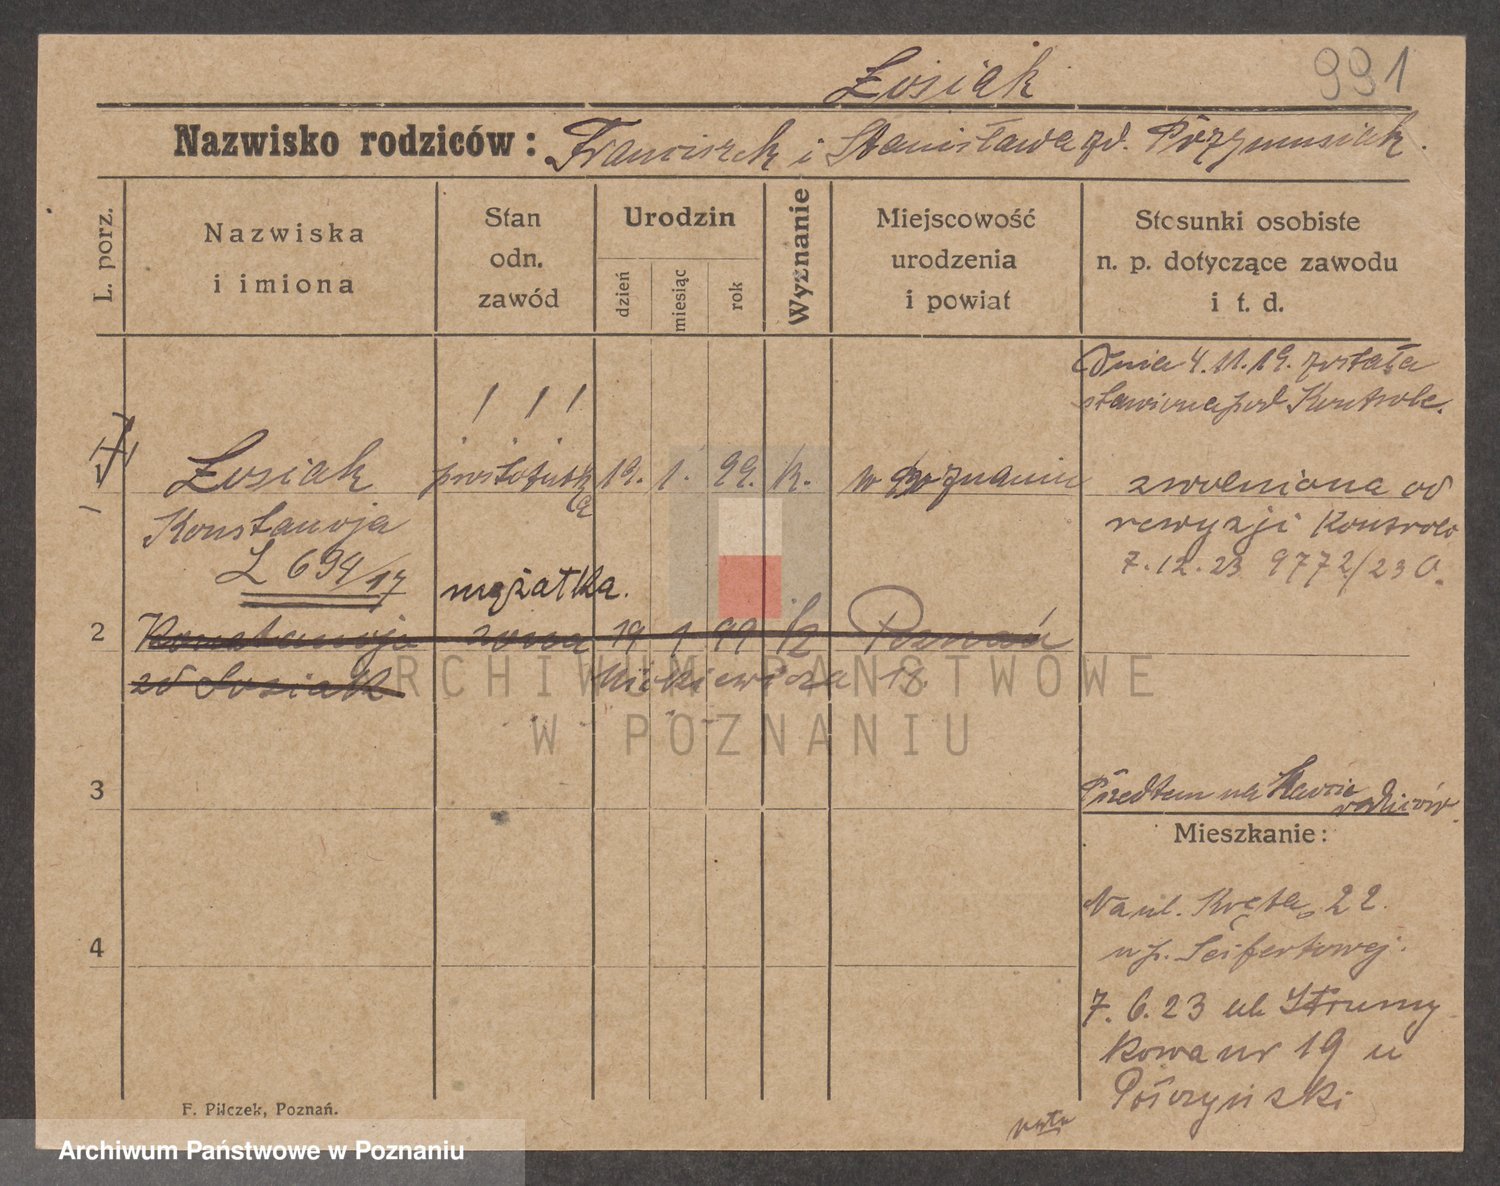 Łosiak
991
Nazwisko rodziców: Franciszek i Stanisława zd. Przymusiak.
L. porz.
Nazwiska
i imiona
Stan
odn.
zawód
Urodzin
dzień
miesiąc
rok
Wyznanie
Miejscowość
urodzenia
i powiat
Stosunki osobiste
n. p. dotyczące zawodu
i t. d.
Dnia 4.11.19. została
stawiona pod Kontrole.
1 Łosiak
Konstancja
L 694/17
19. 1. 99. k. w Poznaniu
zwolniona od
rewyzji Kontrolo
7.12.23 9772/23 O.
mężatka.
2 Konstancja 19 1 99 k Poznań
zd Łosiak
Mickiewicza 18.
3
4
Przedtem na Karcie rodziców.
Mieszkanie:
Na ul. Kręta 22.
u p. Seifertowej.
7.6.23 ul. Strumy
kowa nr 19 u
F. Pilczek, Poznań.
ARCHIWUM PAŃSTWOWE
W POZNANIU
Archiwum Państwowe w Poznaniu